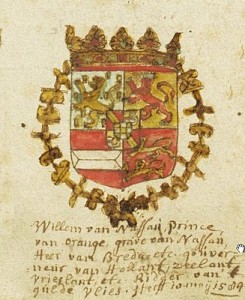 Willem van Nassau, Prince
van orange, grave van Nassau
Heer van Breda etc. gouver-
neur van Hollant, zeelant
vrieslant, etc. Ridder van t
gulde vlies. sterff 10 moij 1584